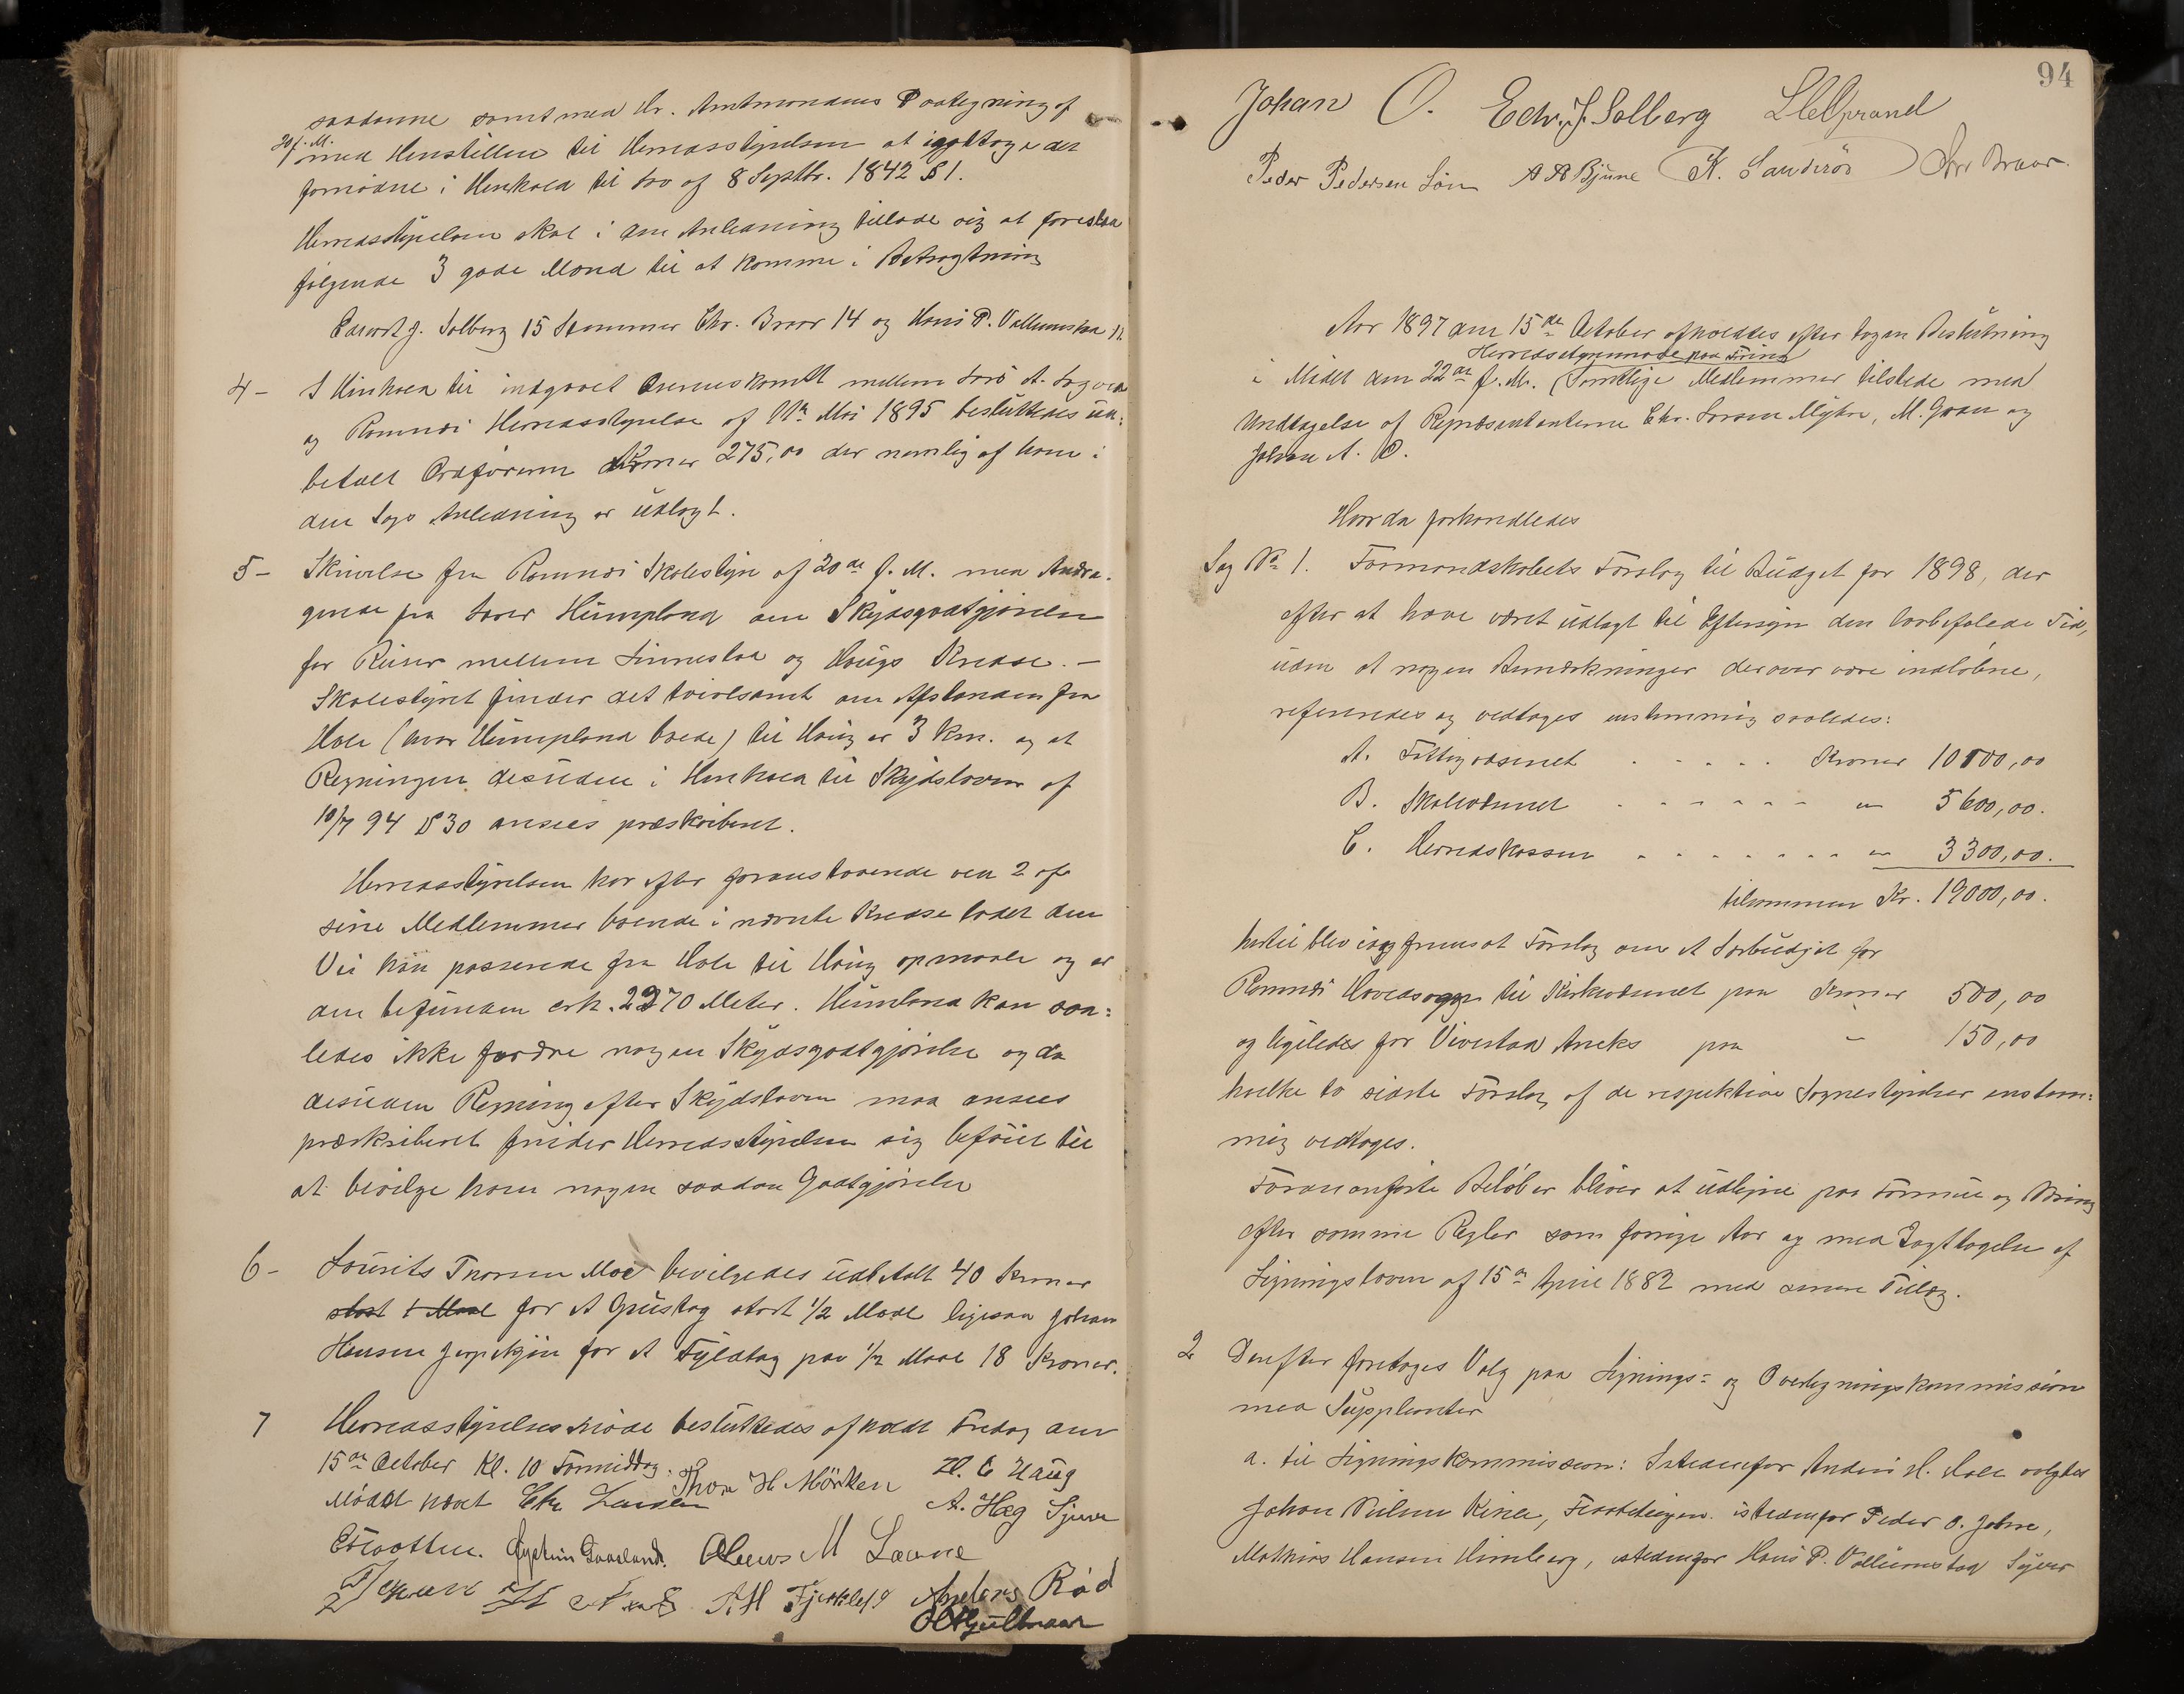 saadanne samt med Hr. Amtmandens Paategning af
20/f. M. med Henstillen til Herredsstyrelsen at iagttage det
fornødne i Henhold til Lov af 8 Septbr. 1842 § 1.
Herredsstyrelsen skal i den Anledning tillade sig at foreslaa
følgende 3 gode Mænd til at komme i Betragtning
Edvart J. Solberg 15 Stemmer Chr. Braar 14 og Hans P. Vallumstad 12
4- I Henhold til indgaaet mellem A.
og Ramnæs Herredsstyrelse af 11te Mai 1895 besluttedes ud:
betalt Ordføreren Kroner 275,00 der nemlig af ham i
den Sags Anledning er udlagt.
5- Skrivelse fra Ramnæs Skolestyre af 20de f. M. med Andra-
gende fra Lærer Humpland om Skydsgodtgjørelse
for Reiser mellem Linnestad og Haugs Kredse. -
Skolestyret finder det tvivlsomt om Afstanden fra
Hole (hvor Humpland boede) til Haug er 3 km. og at
Regningen desuden i Henhold til Skydsloven af
10/7 94 § 30 ansees præskriberet.
Herredsstyrelsen har efter foranstaaende ved 2 af
sine Medlemmer boende i nævnte Kredse ladet den
Vei han passerede fra Hole til Haug opmaale og er
den befunden crk. 2970 Meter. Humpland kan saa:
ledes ikke fordre nogen Skydsgodtgjørelse og da
desuden Regning efter Skydsloven maa ansees
præskriberet finder Herredsstyrelsen sig beføiet til
at bevilge ham nogen saadan Godtgjørelse
6- Laurits Thorsen Moe bevilgedes udbetalt 40 Kroner
stort 1 Maal for et Grustag stort 1/2 Maal ligesaa Johan
Hansen for et Fyldtag paa 1/2 Maal 18 Kroner.
7 Herredsstyrelsesmøde besluttedes afholdt Fredag den
15de October Kl. 10 Formiddag.
Mødet hævet Chr Larsen Thor H Mörken H. C Haug
A. Hæg Sjuve
Gaasland. M Laane
A H Fjerklef Anders Rød
O Hjultmaar
94
Johan O. Edv. J. Solberg
Peder Pedersen Lön A A Bjune K. Sanderöd Chr Braar.
Aar 1897 den 15de October afholdtes efter tagen Beslutning
Herredsstyremøde paa Foss
i Mødet den 22de f. M. (Samtlige Medlemmer tilstede med
Undtagelse af Repræsentanterne Chr. Larsen Myhre, M. Gran og
Johan A. O.
Hvor da forhandledes
Sag No 1. Formandskabets Forslag til Budget for 1898, der
efter at have været udlagt til Eftersyn den lovbefalede Tid,
uden at nogen Anmærkninger derover vare indløbne,
refereredes og vedtoges enstemmig saaledes:
A. Fattigvæsenet - - - - - Kroner 10100,00
B. Skolevæsenet - - - - - - " 5600,00.
C. Herredskassen - - - - - - - " 3300,00.
tilsammen Kr. 19000,00.
hertil blev isag fremsat Forslag om et Særbudjet for
Ramnæs Hovedsogn til Kirkevæsenet paa Kroner 500,00
og ligeledes for Vivestad Aneks paa - 150,00
hvilke to sidste Forslag af de respektive Sognestyrelser enstem:
mig vedtoges.
Forananførte Beløb er bliver at udligne paa Formue og Næring
efter samme Regler som forrige Aar og med Iagttagelse af
Ligningsloven af 15de April 1882 med senere Tillæg.
2 Derefter foretoges Valg paa Lignings= og Overligningskommission
med Suppleanter
a. til Ligningskommission: Istedenfor Anders H. Hole valgtes
Johan Nielsen Kise, istedenfor Peder O. Jahre,
Mathias Hansen Himberg, istedenfor Hans P. Vallumstad Syver